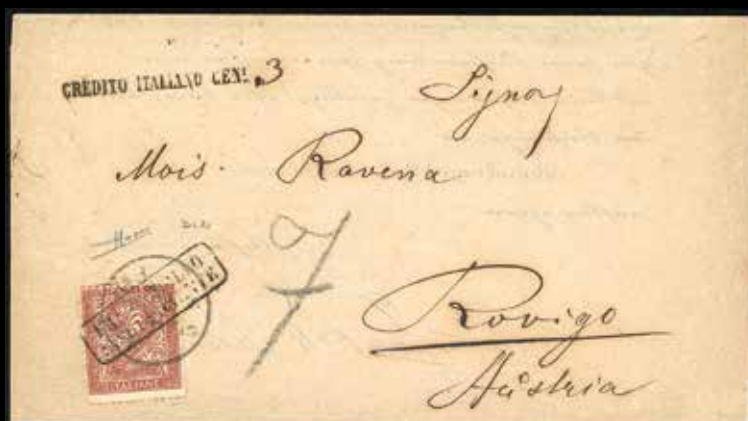 CREDITO ITALIANO CENT. 3
Signor
Mois. Ravenna
7
Rovigo
Austria
ITALIANE